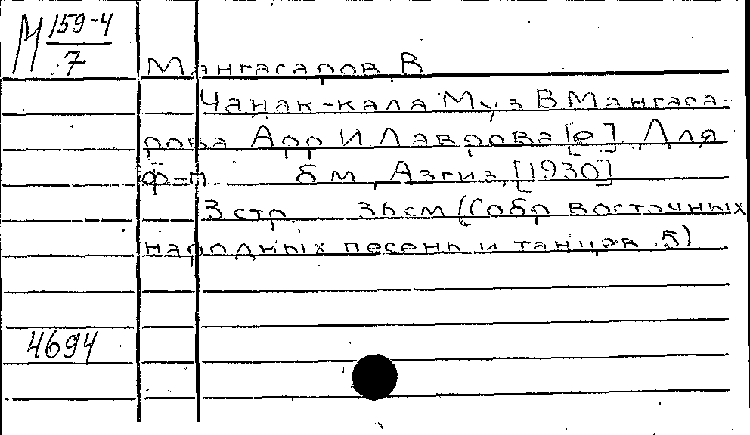 М 159-4
7
Мангасаров В
Чанак-кала Муз В Мангаса-
рова Арр И Лаврова [е] Для
ф=п б м, Азгиз, [1930]
3 стр 36см (Собр восточных
народных песень и танцов 5)
4694